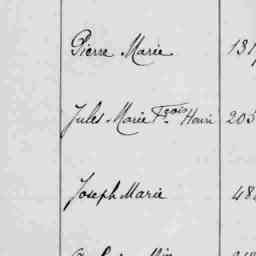 Pierre Marie 131
Jules Marie Fçois Henri 205
Joseph Marie 48